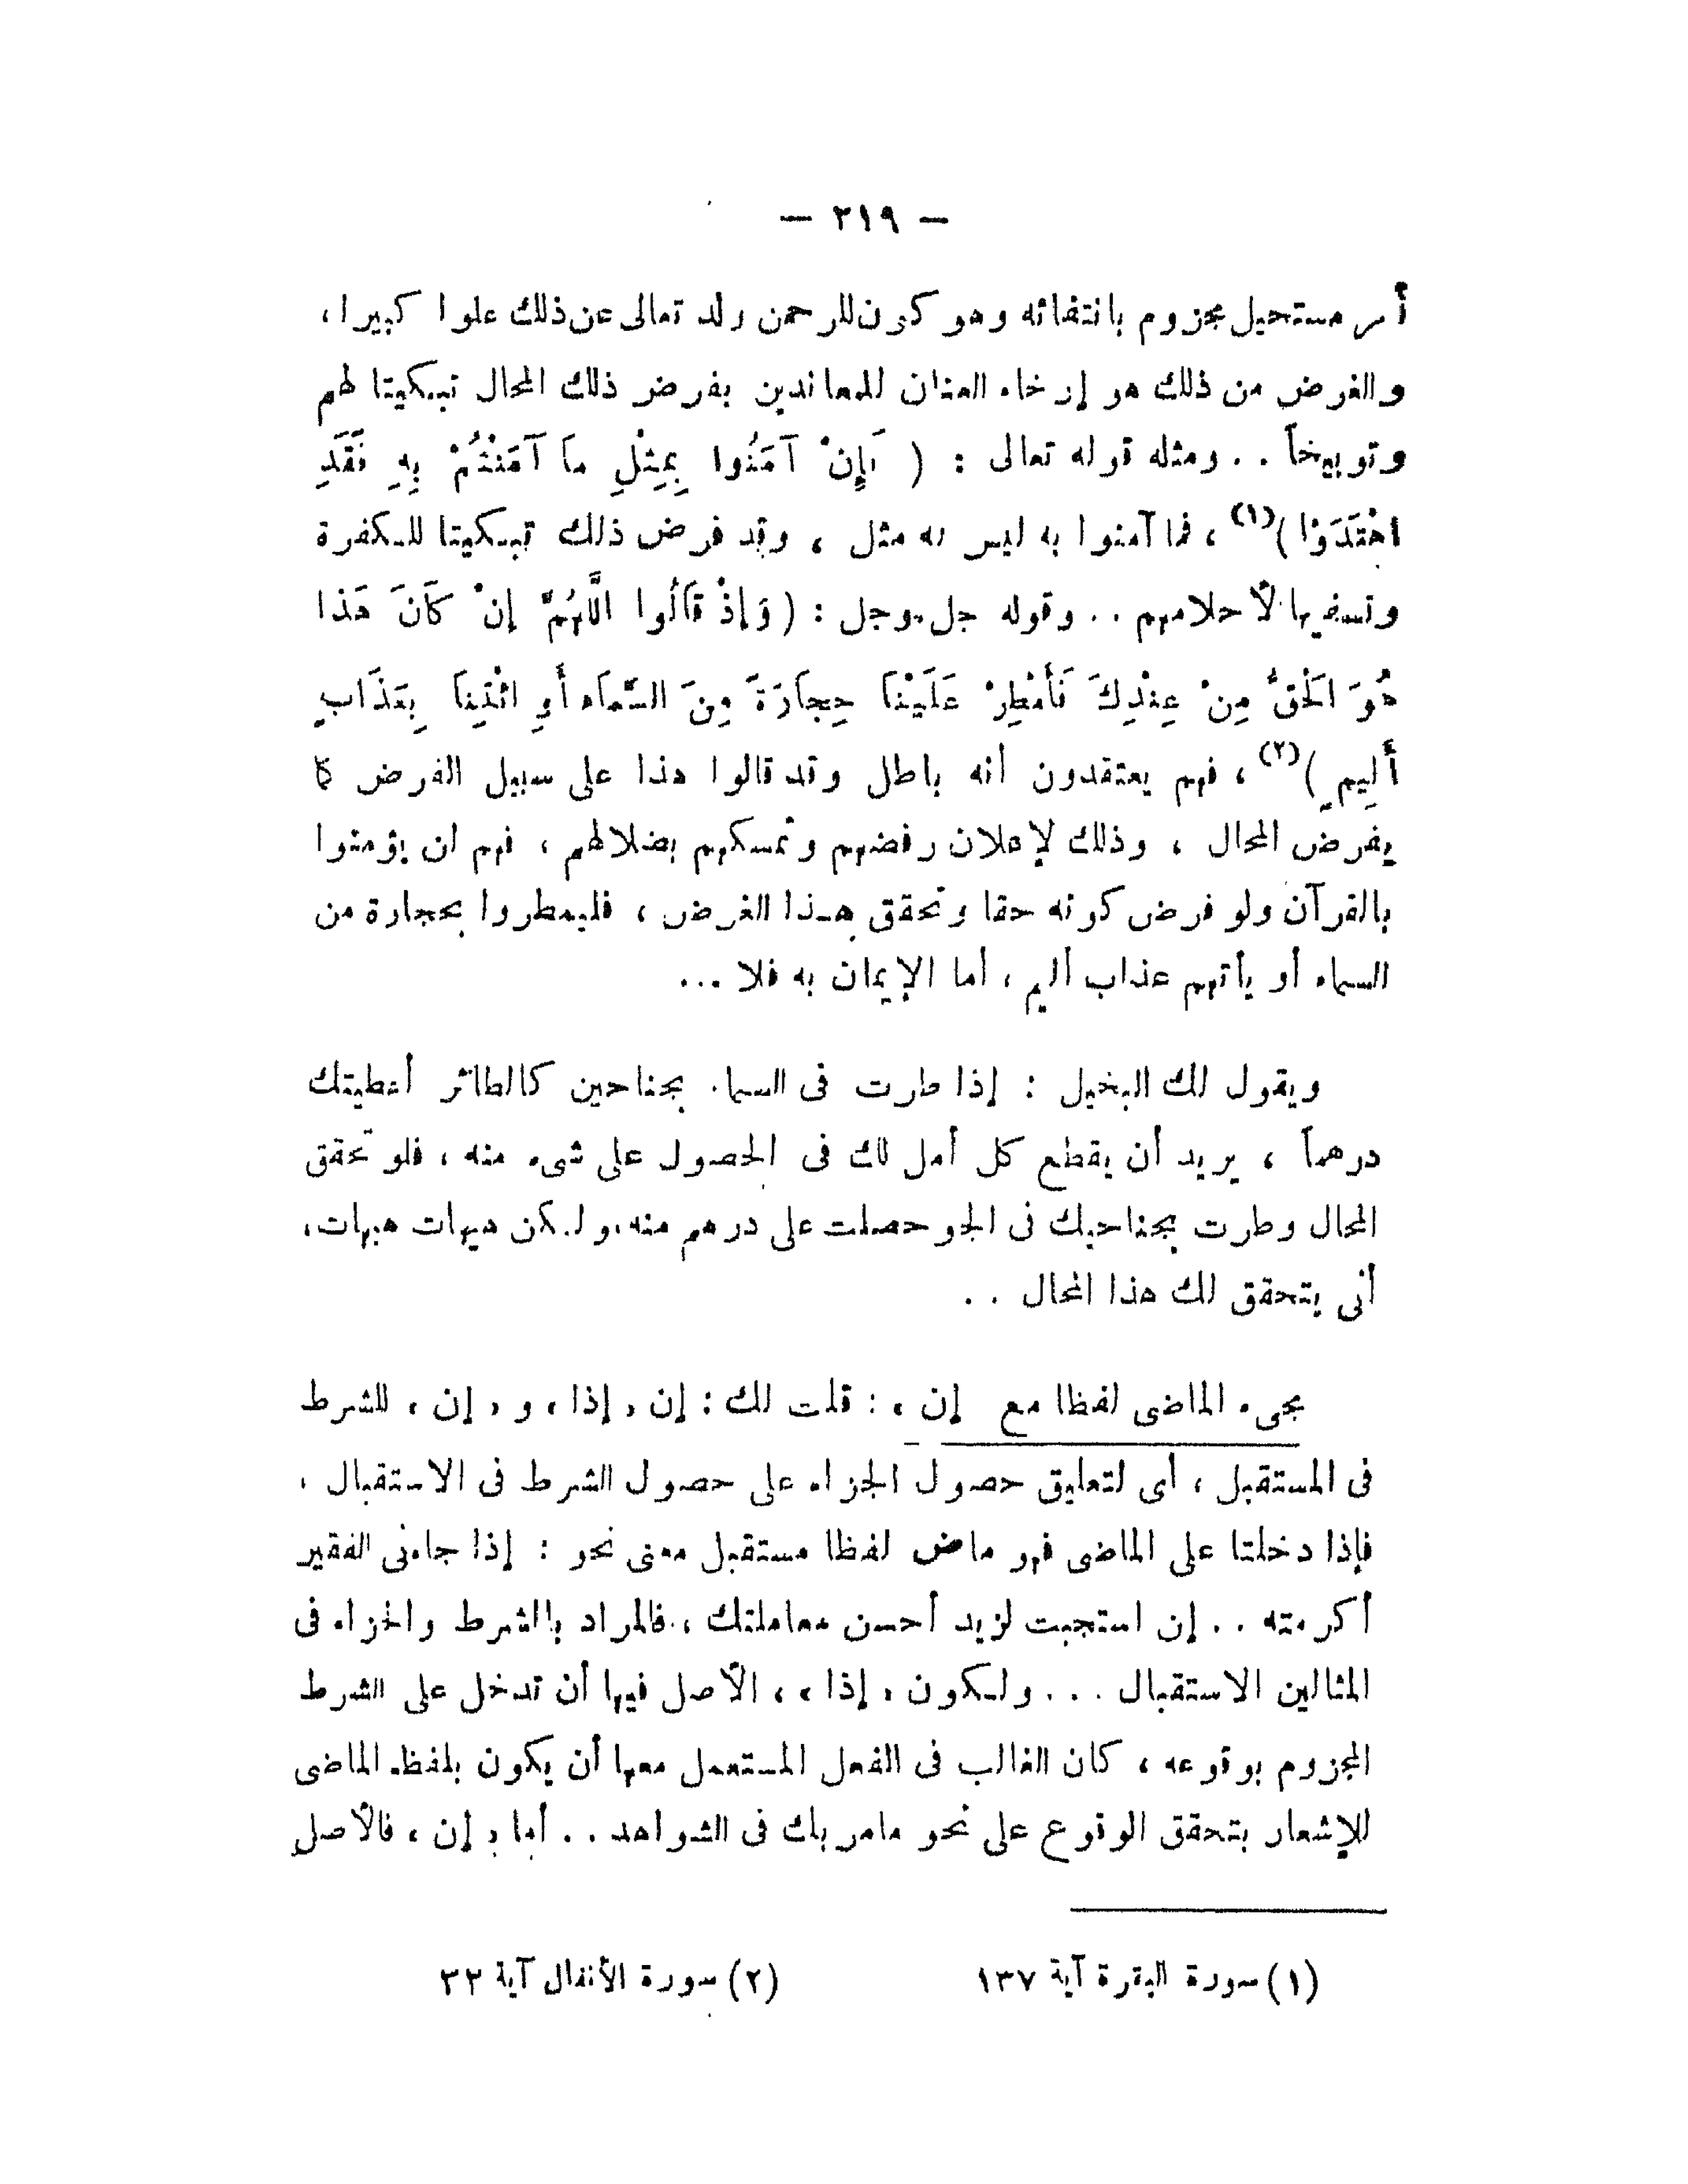 — ٢١٩ —
أمر مستحيل مجزوم بانتفائه وهو كون للرحمن ولد تعالى عن ذلك علوا كبيرا ،
والغرض من ذلك هو إرخاء العنان للمعاندين بفرض ذلك المحال تبكيتا لهم
وتوبيخاً .. ومثله قوله تعالى : ( فَإِنْ آمَنُوا بِمِثْلِ مَا آمَنْتُمْ بِهِ فَقَدِ
اهْتَدَوْا )(١) ، فما آمنوا به ليس له مثل ، وقد فرض ذلك تبكيتا للكفرة
وتسفيها لأحلامهم .. وقوله جل وجل : ( وَإِذْ قَالُوا اللَّهُمَّ إِنْ كَانَ هَذا
هُوَ الْحَقَّ مِنْ عِنْدِكَ فَأَمْطِرْ عَلَيْنَا حِجَارَةً مِنَ السَّمَاء أَوِ ائْتِنَا بِعَذَابٍ
أَلِيمٍ )(٢) ، فهم يعتقدون أنه باطل وقد قالوا هذا على سبيل الفرض كما
يفرض المحال ، وذلك لإعلان رفضهم وتمسكهم بضلالهم ، فهم لن يؤمنوا
بالقرآن ولو فرض كونه حقا وتحقق هذا الغرض ، فليمطروا بحجارة من
السماء أو يأتهم عذاب أليم ، أما الإيمان به فلا ...
ويقول لك البخيل : إذا طرت فى السماء بجناحين كالطائر أعطيتك
درهماً ، يريد أن يقطع كل أمل لك فى الحصول على شىء منه ، فلو تحقق
المحال وطرت بجناحيك فى الجو حصلت على درهم منه ، ولكن هيهات هيهات ،
أنى يتحقق لك هذا المحال ..
مجىء الماضى لفظا مع إن ، : قلت لك : إن , إذا ، و , إن ، للشرط
فى المستقبل ، أى لتعليق حصول الجزاء على حصول الشرط فى الاستقبال ،
فإذا دخلتا على الماضى فهو ماض لفظا مستقبل معنى نحو : إذا جاءنى الفقير
أكرمته .. إن استجبت لزيد أحسن معاملتك ، فالمراد بالشرط والجزاء فى
المثالين الاستقبال ... ولكون , إذا ، ، الأصل فيها أن تدخل على الشرط
المجزوم بوقوعه ، كان الغالب فى الفعل المستعمل معها أن يكون بلفظ الماضى
للإشعار بتحقق الوقوع على نحو مامر بك فى الشواهد .. أما , إن ، فالأصل
(١) سورة البقرة آية ١٣٧
(٢) سورة الأنفال آية ٣٢